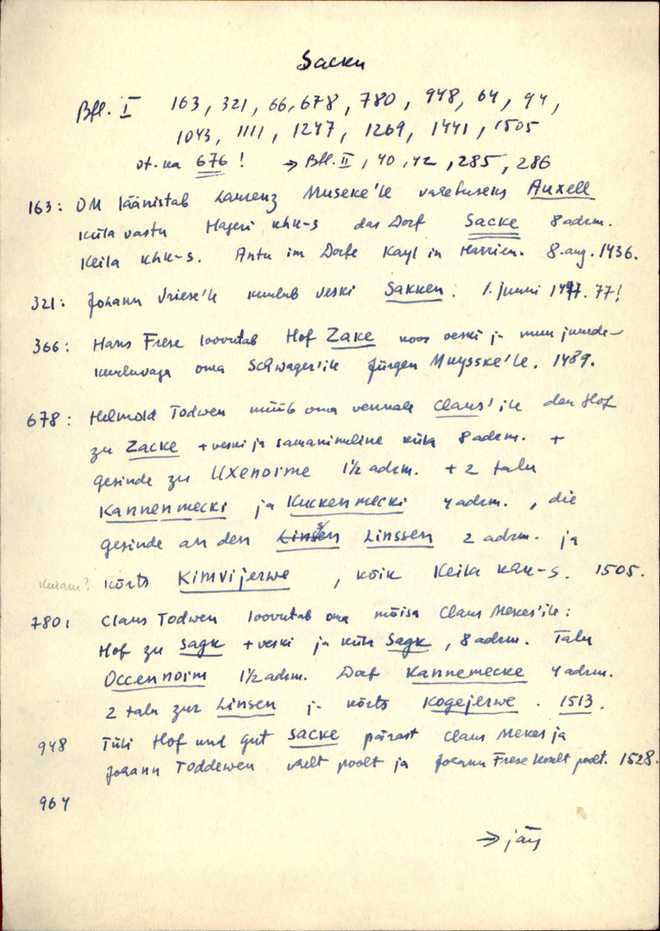 Sacku
Bfl. I 163, 321, 66, 678, 780, 948, 64, 94,
1043, 1111, 1247, 1269, 1441, 1505
vt. ka 676! → Bfl. II, 40, 42, 285, 286
163: OM läänistab Laurenz Museke'le vahetuseks Auxell
küla vastu Hageri khk-s das Dorf Sacke 8 adrm.
Keila khk-s. Antu im Dorfe Kayl in Harrien. 8. aug. 1436.
321: Johann Vriese'le kuulub veski Sakken. 1. juuni 1477. 77!
366: Hans Frese loovutab Hof Zake koos veski ja muu juurde-
kuuluvaga oma Schwager'ile Jürgen Muysske'le. 1489.
678: Helmold Todwen müüb oma vennale Claus'ile den Hof
zu Zacke + veski ja samanimeline küla 8 adrm. +
gesinde zu Uxenorme 1½ adrm. + 2 talu
Kannenmecki ja Kuckenmecki 4 adrm., die
gesinde an den Linssen 2 adrm. ja
kuram? kõrts Kimvijerwe, kõik Keila khk-s. 1505.
780: Claus Todwen loovutab oma mõisa Claus Mekes'ile:
Hof zu Sagk + veski ja küla Sagk, 8 adrm. Talu
Occennorm 1½ adrm. Dorf Kannemecke 4 adrm.
2 talu zur Linsen ja kõrts Kogejerwe. 1513.
948 Tüli Hof und gut Sacke pärast Claus Mekes ja
Johann Toddewen ühelt poolt ja Johann Frese teiselt poolt. 1528.
964
→ järg